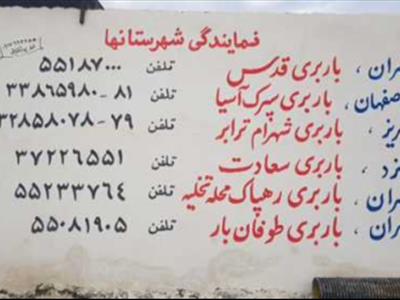 نمایندگی شهرستانها
ران ، باربری قدس تلفن ۵۵۱۸۷۰۰۰
صفهان ، باربری سپرک آسیا تلفن ۳۳۸۶۵۹۸۰-۸۱
ریز ، باربری شهرام ترابر تلفن ۳۲۸۵۸۰۷۸-۷۹
زد ، باربری سعادت تلفن ۳۷۲۲۶۵۵۱
ران ، باربری رهپاک محله تخلیه تلفن ۵۵۲۳۳۷۶۴
ران ، باربری طوفان بار تلفن ۵۵۰۸۱۹۰۵